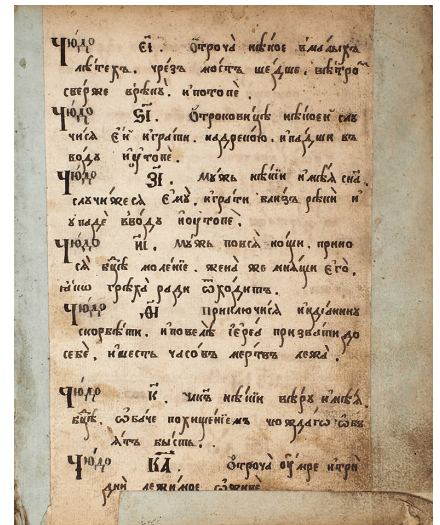 Чюдо е҃і. Ѻтрочà нѣкое вмалыхъ
лѣтехъ, чрéзъ мостъ шедше, вѣтро
свержe врѣкꙋ, ипотопѐ.
Чюдо ѕ҃і. Ѻтроковицѣ нѣкоей слꙋ
чися ей играти, надрекою, ипадши въ
водꙋ иꙋтопе.
Чюдо з҃і. мꙋжъ нѣкіи имѣя сна̀,
слꙋчижеся емꙋ̀, играти близъ рѣки и҆
ꙋпадѐ вводꙋ̀ иꙋтопе.
Чюдо и҃і. мꙋжъ повся нощи, прино
ся̀ бц҃ѣ моленїе, жена̀ же мнящи его̀,
ꙗкѡ грѣха ради ѿходитъ.
Чюдо ѳ҃і Приключися индїанинꙋ
скорбѣти, иповелѣ їереа призвати до
себѐ, ишесть часовъ мертвъ лежа̀.
Чюдо к҃. нѣкіи вѣрꙋ имѣя
бц҃ѣ, ѡбаче похищенїемъ чюждагѡ ѡбъ
ятъ бысть.
Чюдо к҃а. Ѻтроча̀ ꙋмре итри
дни лежимое ѡживе